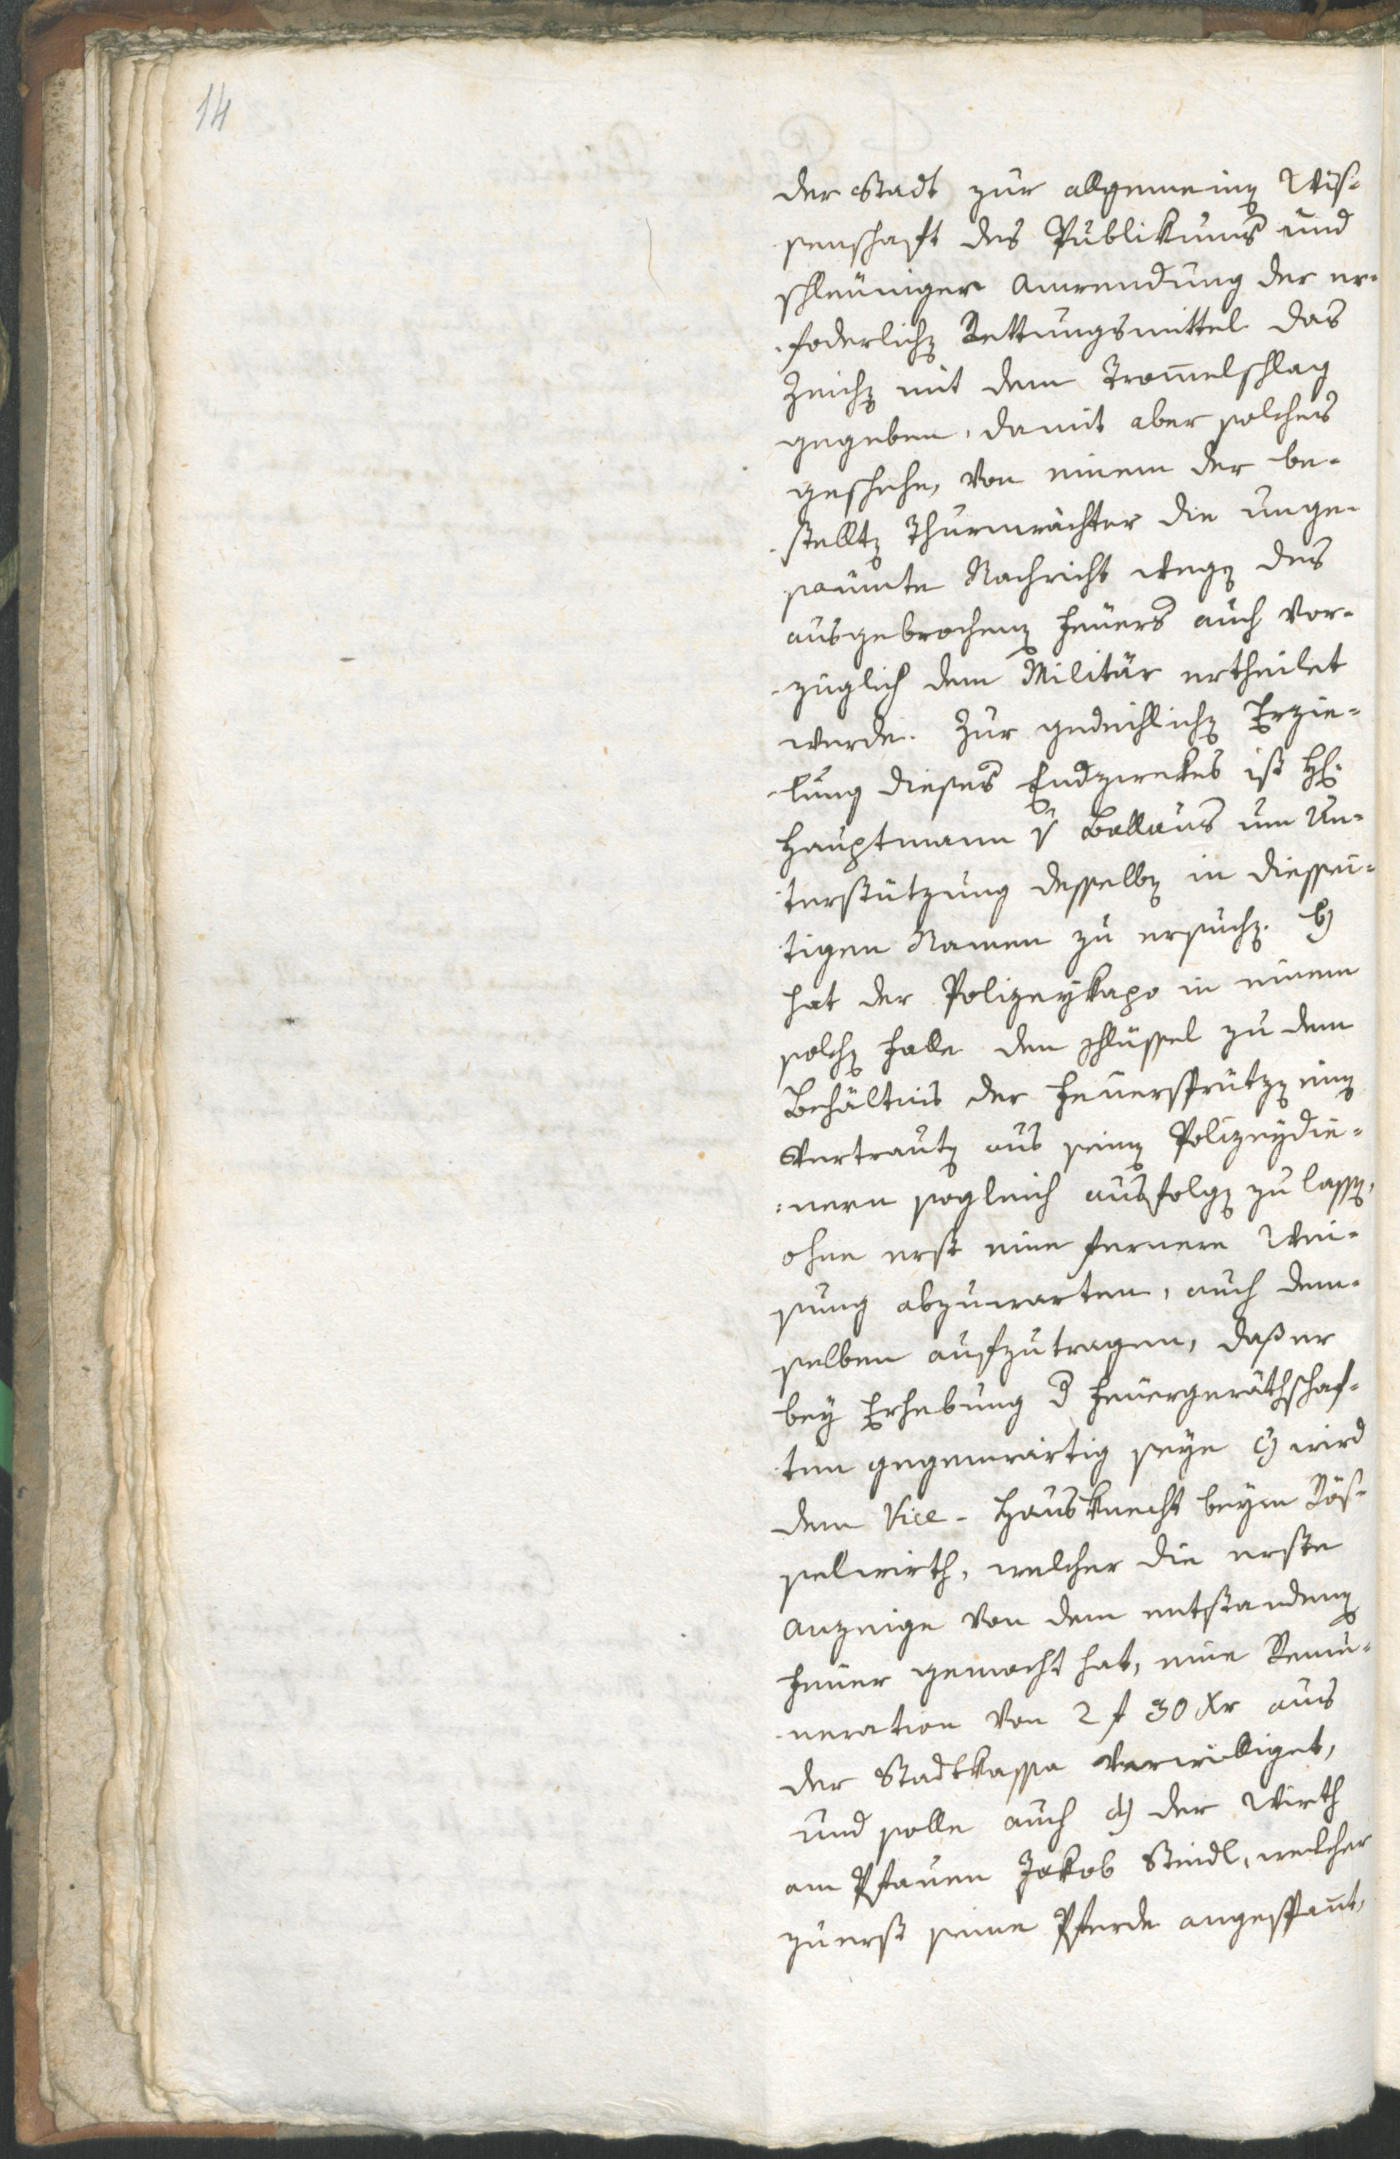 14
der Stadt zur allgemeinen Wis-
senschaft des Publikums und
schleüniger Anwendung der er-
foderlichen Rettungsmittel das
Zeichen mit dem Tromelschlag
gegeben, damit aber solches
geschehe, von einem der be-
stellten Thurmwächter die unge-
säumte Nachricht wegen des
ausgebrochenen Feüers auch vor-
züglich dem Militär ertheilet
werde. Zur gedeihlichen Erzie-
lung dieses Endzwekes ist H.
Hauptmann v Ballaus um Un-
terstützung desselben in diessei-
tigen Namen zu ersuchen. b)
hat der Polizeykapo in einem
solchen Falle den Schlüssel zu dem
Behältnis der Feuersprützen einen
Vertrauten aus seinen Polizeydie-
nern sogleich ausfolgen zu lassen,
ohne erst eine fernere Wei-
sung abzuwarten, auch dem-
selben aufzutragen, daß er
bey Erhebung d Feuergeräthschaf-
ten gegenwärtig seye c) wird
dem Vice-Hausknecht beym Rös-
selwirth, welcher die erste
Anzeige von dem entstandenen
Feuer gemacht hat, eine Remu-
neration von 2 f 30 Xr aus
der Stadtkassa verwilliget,
und solle auch d) der Wirth
am Pfauen Jakob Steidl, welcher
zuerst seine Pferde angespannt,